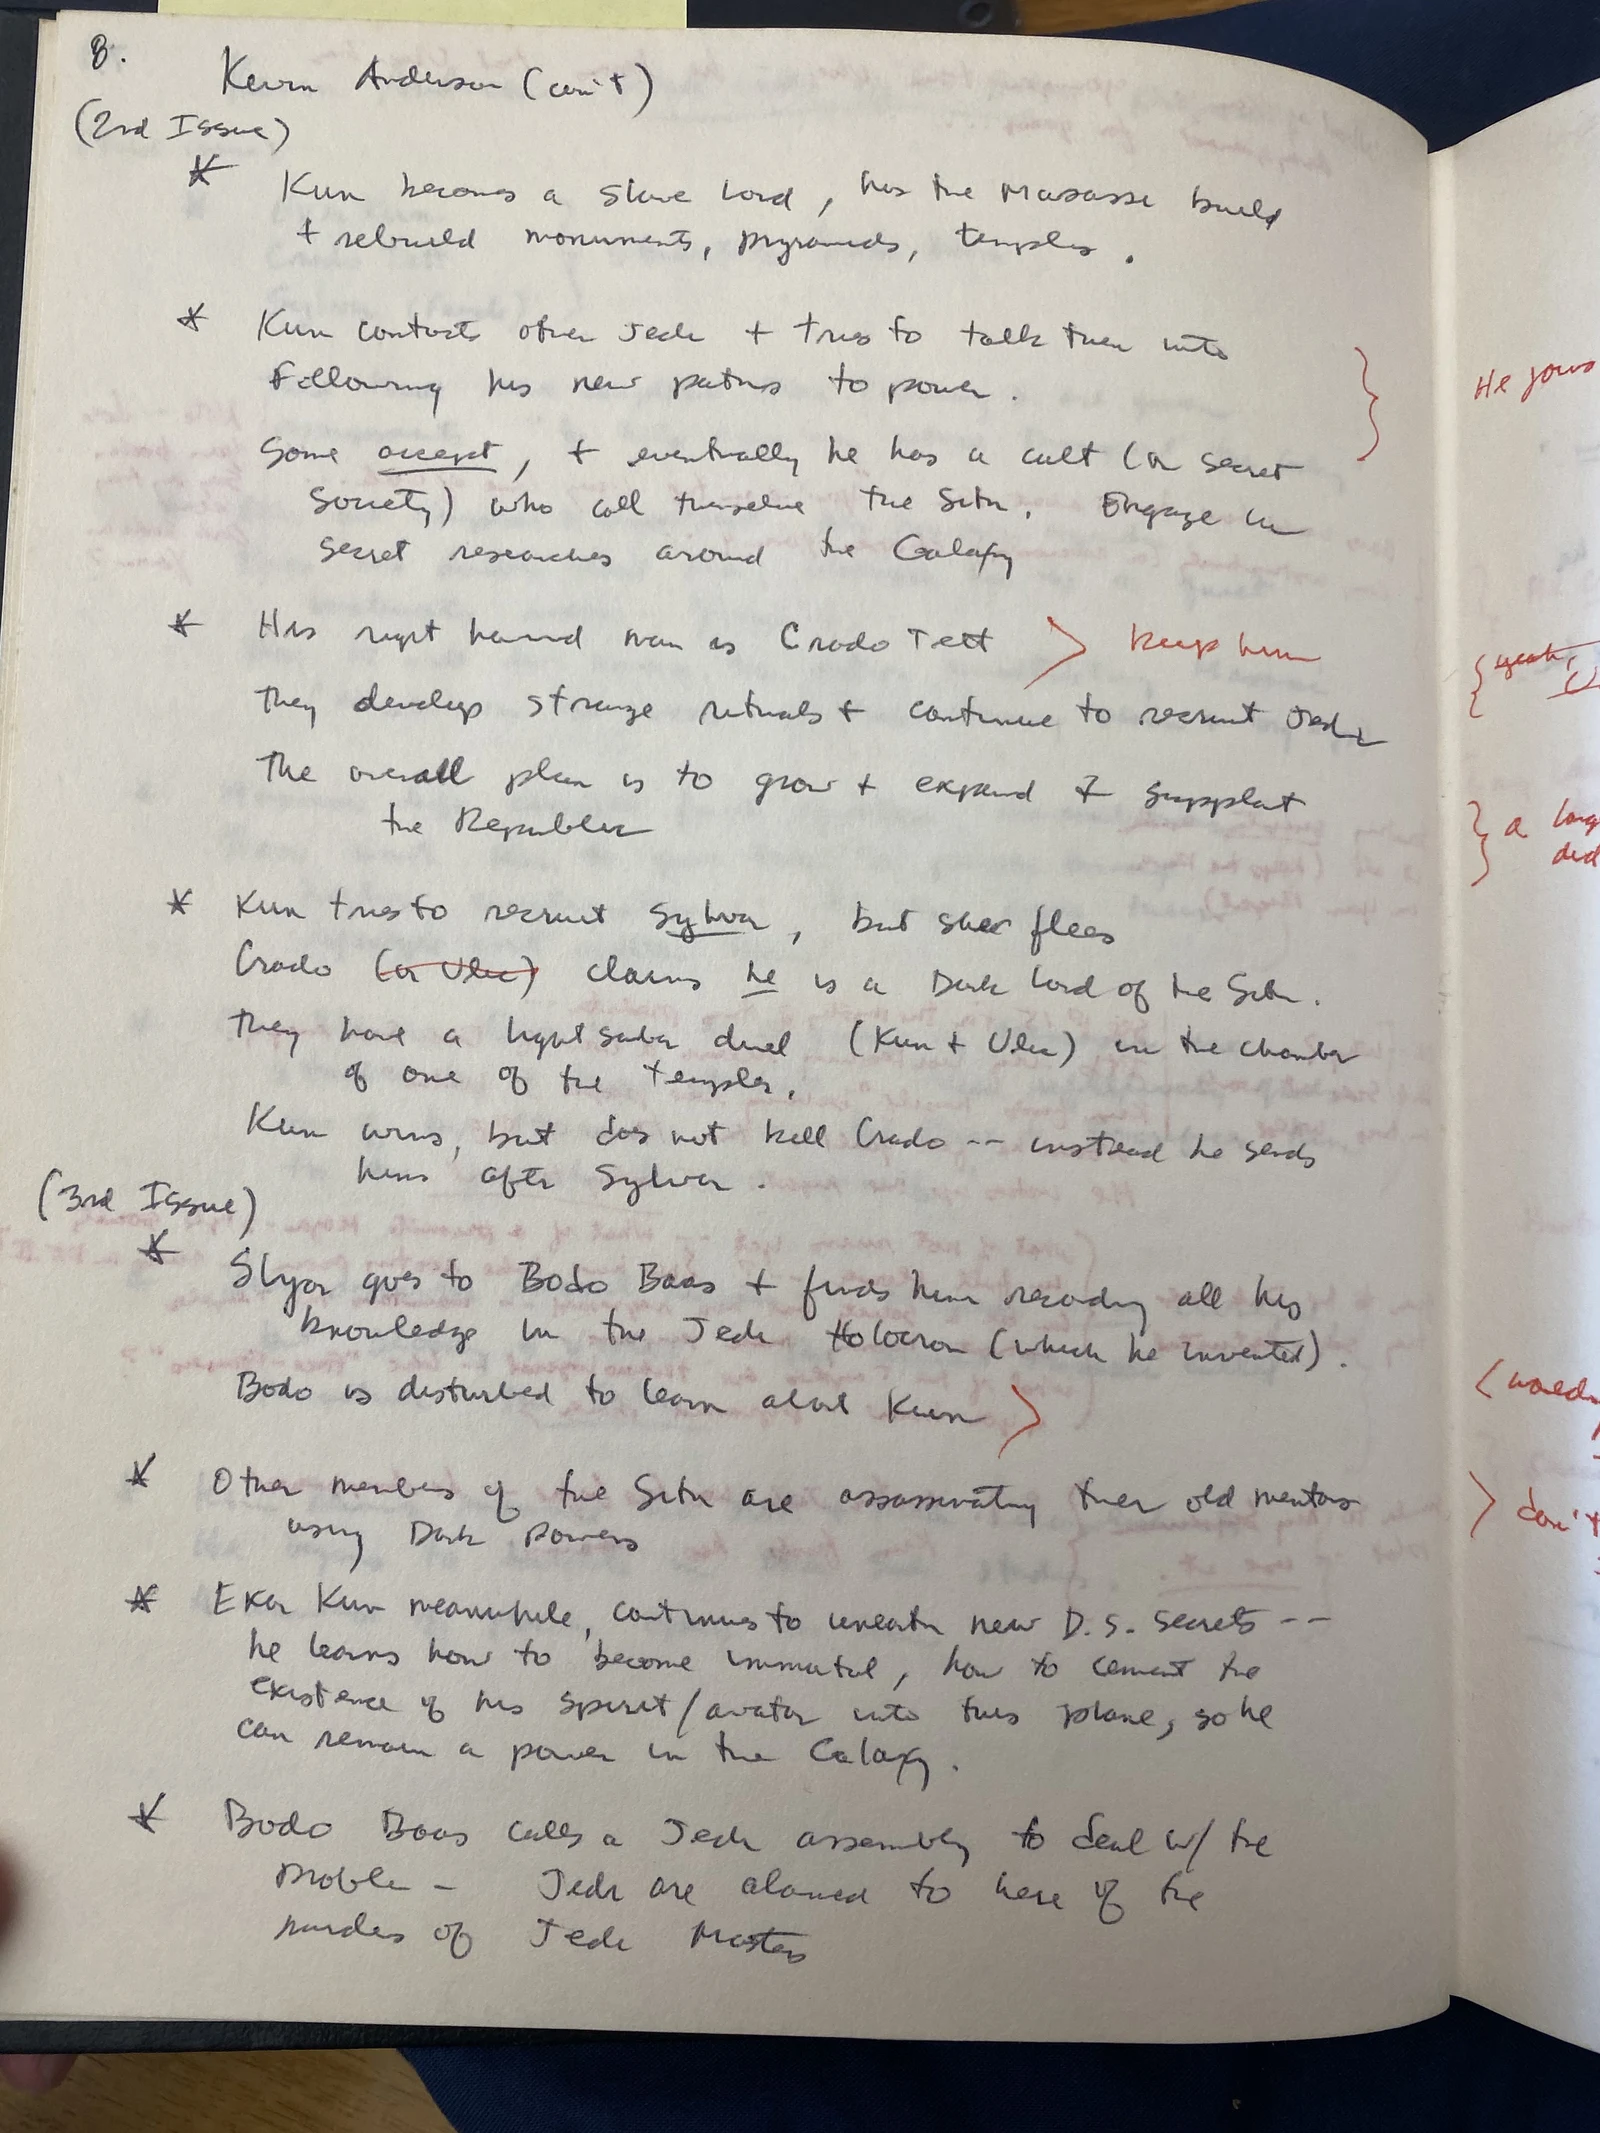 8.
Kevin Anderson (con't)
(2nd Issue)
* Kun becomes a slave lord, has the Massassi build
+ rebuild monuments, pyramids, temples.
* Kun contacts other Jedi + tries to talk them into
Following his new paths to power.
Some accept, + eventually he has a cult (or secret
society) who call themselve the Sith. Engage in
secret researches around the Galaxy
* His right hand man is Crado Tett > keep him
They develop strange rituals + continue to recruit Jedi
The overall plan is to grow + expand + supplant
the Republic
* Kun tries to recruit Sylvar, but she flees
Crado (or Ulic) claims he is a Dark Lord of the Sith.
They have a lightsaber duel (Kun + Ulic) in the chamber
of one of the temples.
Kun wins, but does not kill Crado -- instead he sends
him after Sylvar.
(3rd Issue)
* Slyar goes to Bodo Baas + finds him recording all his
knowledge in the Jedi Holocron (which he invented).
Bodo is disturbed to learn about Kun >
* Other members of the Sith are assassinating their old mentors
using Dark Powers
* Exar Kun meanwhile, continues to unearth new D.S. secrets --
he learns how to become immortal, how to cement the
existence of his spirit/avatar into this plane, so he
can remain a power in the Galaxy.
* Bodo Baas calls a Jedi assembly to deal w/ the
problem - Jedi are alarmed to here of the
murders of Jedi Masters
He joins
yeah,
} a long
did
> don't